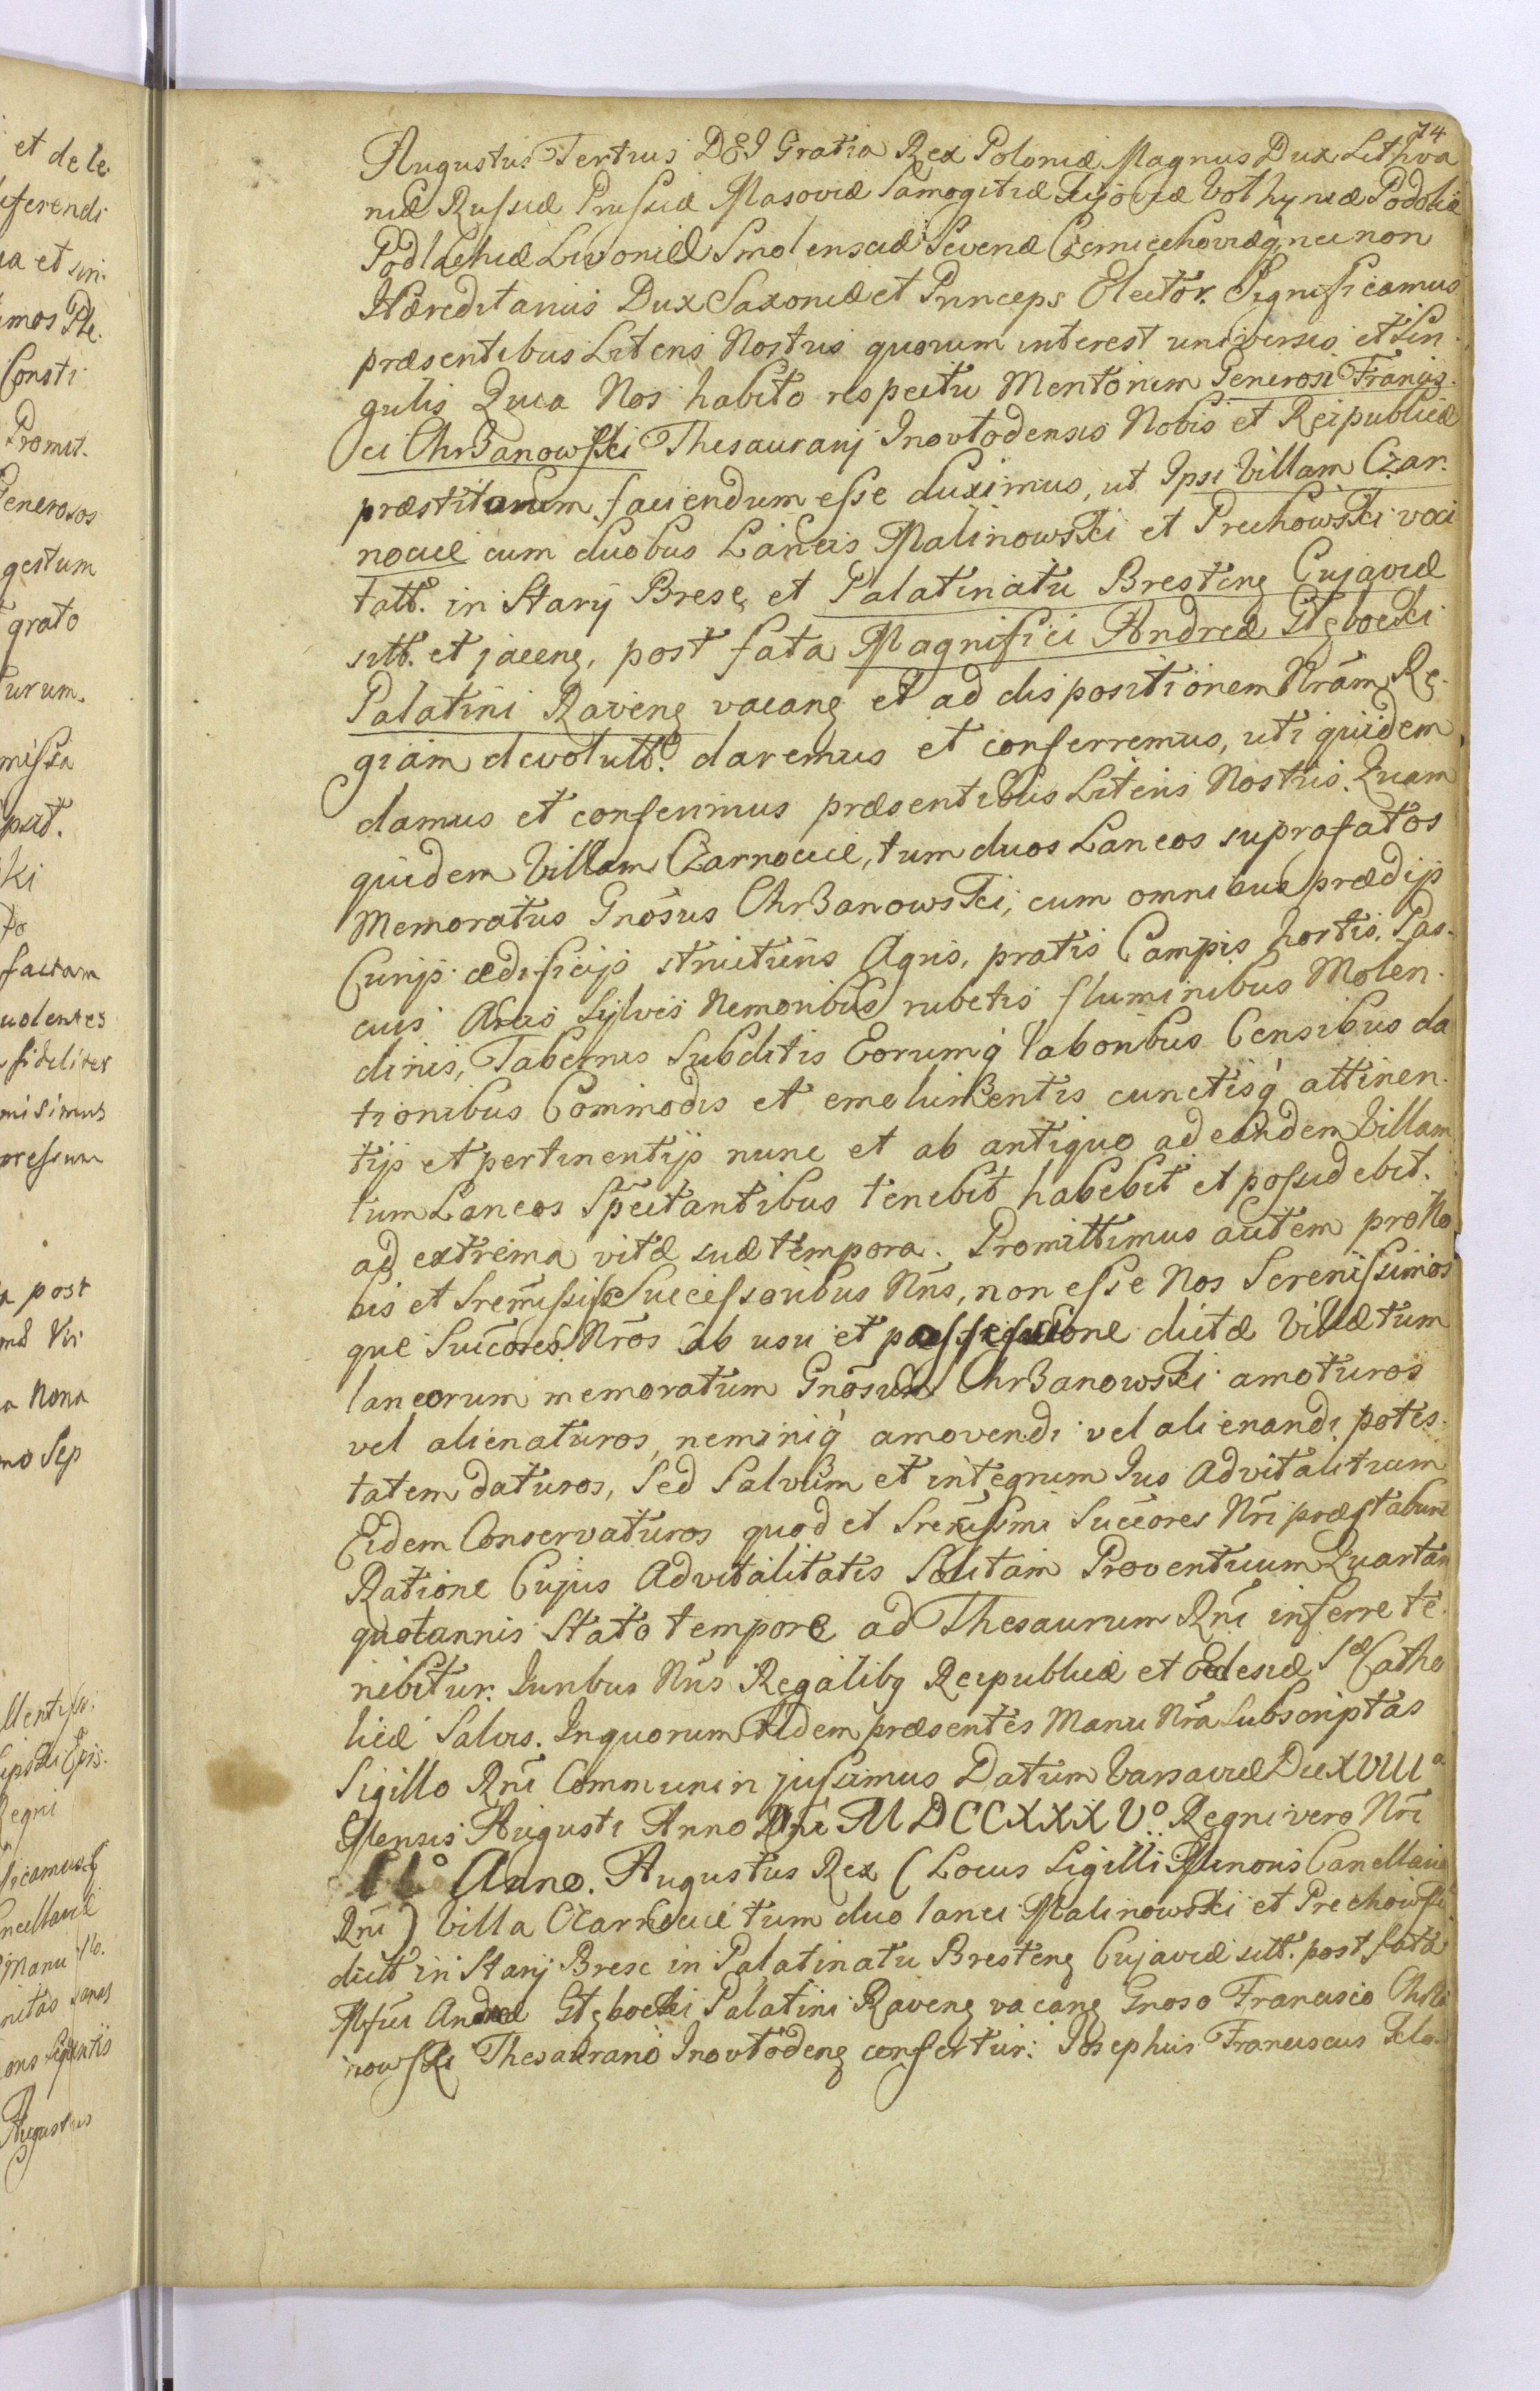 74
Augustus Tertius DEI Gratia Rex Poloniæ Magnus Dux Lithva
niæ Russiæ Prussiæ Masoviæ Samogitiæ Kijoviæ Volhyniæ Podoliæ
Podlachiæ Livoniæ Smolensciæ Severiæ Czerniechoviæq́ necnon
Hæreditarius Dux Saxoniæ et Princeps Elector. Significamus
præsentibus Literis Nostris quorum interest universis et Sin-
gulis Quia Nos habito respectu Meritorum Generosi Francis-
ci Chrzanowski Thesaurarij Inowłodensis Nobis et Reipublicæ
præstitorum faciendum esse duximus, ut Ipsi Villam Czar-
nocice cum duobus Laneis Malinowski et Prechowski voci
tatt. in Stary Bresc et Palatinatu Bresteng Cujaviæ
sitt. et jaceng, post fata Magnifici Andreæ Głębocki
Palatini Raveng vacang et ad dispositionem Nrãm Re-
giam devolutt. daremus et conferremus, uti quidem
damus et conferimus præsentibus Literis Nostris. Quam
quidem Villam Czarnocice, tum duos Laneos suprafatos
Memoratus Gnõsus Chrzanowski, cum omnibus prædijs
Curijs ædificijs structuris Agris, pratis Campis hortis, Pas-
cuis Areis Sylvis Nemoribus rubetis fluminibus Molen-
dinis, Tabernis Subditis Eorumq́ laboribus Censibus da
tionibus Commodis et emolumentis cunctisq́ attinen-
tijs et pertinentijs nunc et ab antiquo ad eandem Villam
tum Laneos Spectantibus tenebit habebit et possidebit.
ad extrema vitæ suæ tempora. Promittimus autem pro No
bis et Srenissis Successoribus Nris, non esse Nos Serenissimos
que Succores Nrõs ab usu et possessione dictæ Villæ tum
laneorum memoratum Gnõsum Chrzanowski amoturos
vel alienaturos, neminiq́ amovendi vel alienandi potes-
tatem daturos, Sed Salvum et integrum Ius Advitalitium
Eidem Conservaturos quod et Srenissmi Succores Nrĩ præstabunt
Ratione Cujus Advitalitatis Solitam Proventuum Quartam
quotannis Stato tempore ad Thesaurum Rñi inferre te-
nebitur. Iuribus Nris Regalibq Reipublicæ et Eclesiæ Sæ Catho
licæ Salvis. In quorum fidem præsentes Manu Nrã Subscriptas
Sigillo Rñi Communiri jussimus Datum Varsaviæ Die XVIIIa
Mensis Augusti Anno Dñi MDCCXXXVo. Regni vero Nrĩ
IIo Anno. Augustus Rex (Locus Sigilli Minoris Cancellariæ
Rñi) Villa Czarnocice tum duo lanei Malinowski et Prechowski
dictt in Stary Bresc in Palatinatu Bresteng Cujaviæ sitt. post fata
Mfici Andreæ Głębocki Palatini Raveng vacang Gnoso Francisco Chrza
nowski Thesaurario Inowłodeng confertur. Josephus Franciscus